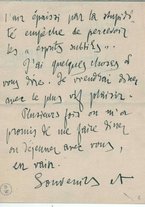 l'air épaissi par la stupidité
empêche de percevoir
les « esprits subtils ».
J'ai quelques choses à
vous dire. Je viendrai dîner
avec le plus vif plaisir.
Plusieurs fois on m'a
promis de me faire dîner
ou déjeuner avec vous,
en vain.
Souvenirs et